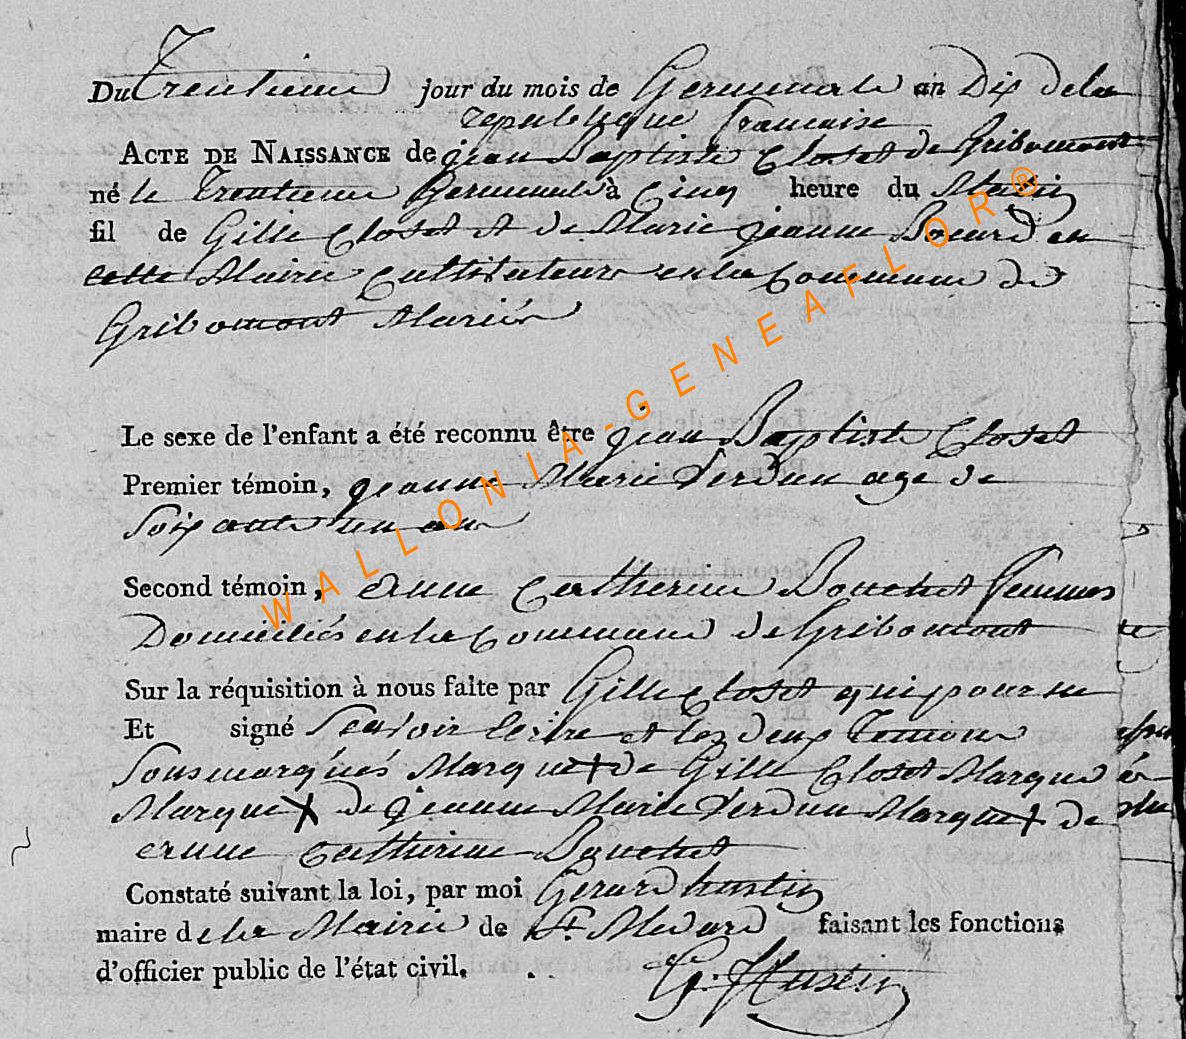 Du Trentieme jour du mois de Germinale an Dix dela
republique francaise
ACTE DE NAISSANCE de jean Baptiste Closet de Gribomont
né le Trentieme Germinale à Cinq heure du Matin
fil de Gille Closet et de Marie jeanne en
cette Mairie Cultivateur en la Commune de
Gribomont Mariés
Le sexe de l'enfant a été reconnu être jean Baptiste Closet
Premier témoin, jeanne Marie Verdun age de
Soixante un an
Second témoin, Catherine Bouchet femmes
Domiciliés en la Commune de Gribomont
Sur la réquisition à nous faite par Gille Closet qui pour ne
Et signé Scavoir Ecrire et les deux Temoins
Sousmarqués Marque + de Gille Closet Marqué
Marque X de jeanne Marie Verdun Marque + de
Catherine Bouchet
Constaté suivant la loi, par moi Gerard hustin
maire dela Mairie de St. Medard faisant les fonctions
d'officier public de l'état civil.
G. Hustin
WALLONIA-GENEAFLOR®